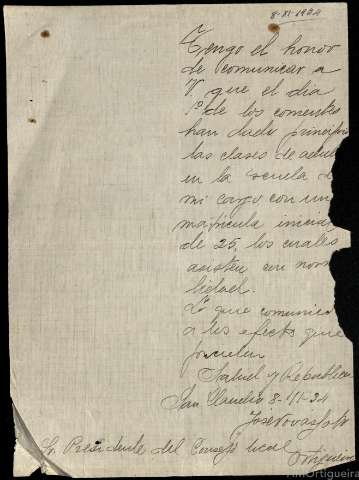 8-XI-1934
Tengo el honor
de comunicar a
V. que el dia
1º de los corrientes
han dado principio
las clases de adul
en la Escuela de
mi cargo con un
matrícula inicia
de 25, los cuales
asisten con norm
lidad.
Lo que comunico
a los efectos que
procedan
Salud y República
San Claudio 8-XI-34
José
Sr. Presidente del Consejo local
Ortigueira
ArMOrtigueira